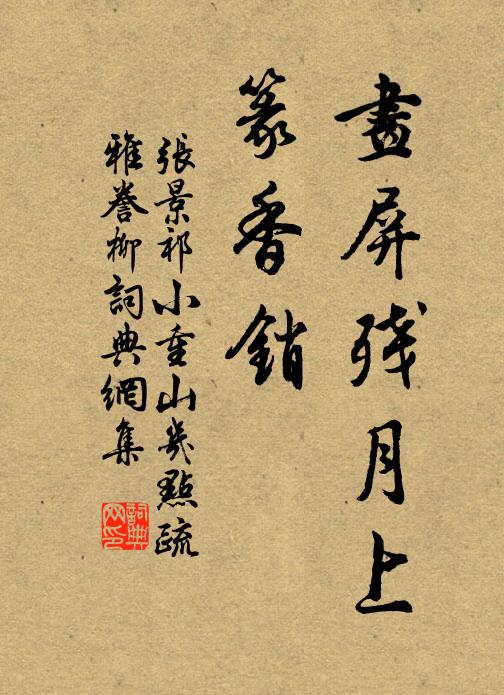 畫屏残月上
篆香銷
張景祁小重山幾點疏
雅誉柳詞典網集
詞典
网印